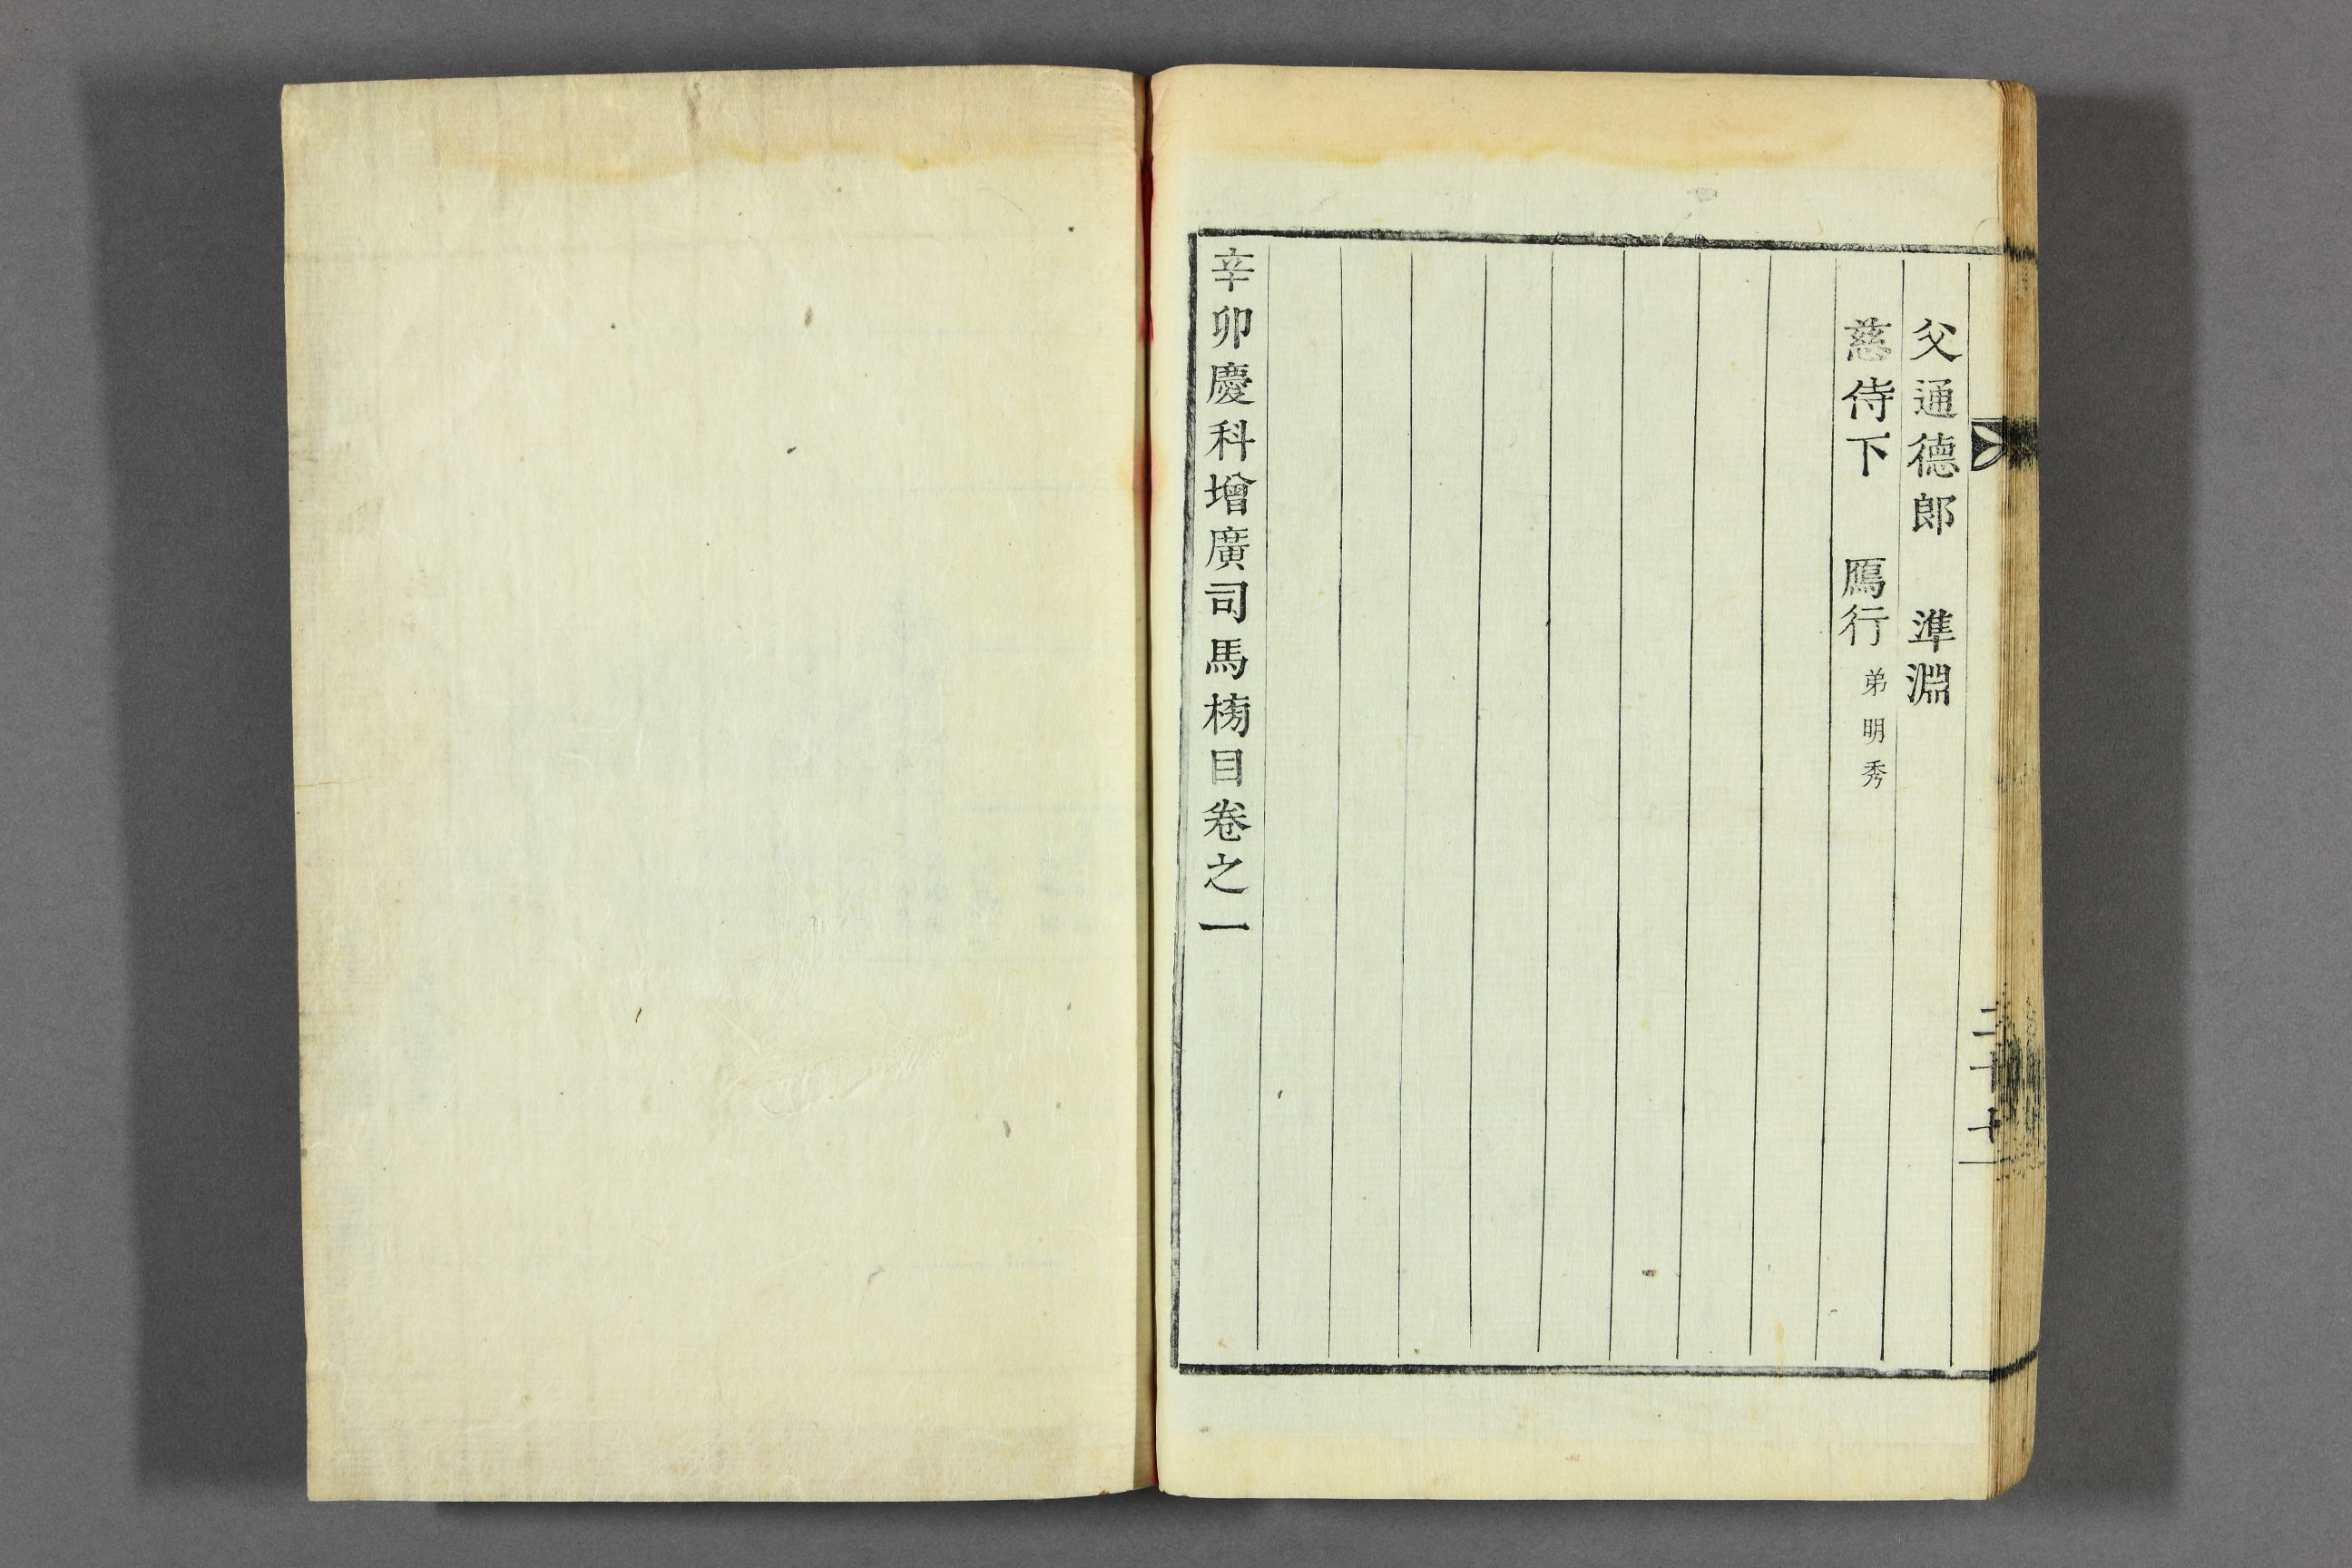 父通德郎 準淵
慈侍下 鴈行 弟明秀
辛卯慶科增廣司馬榜目卷之一
二十七